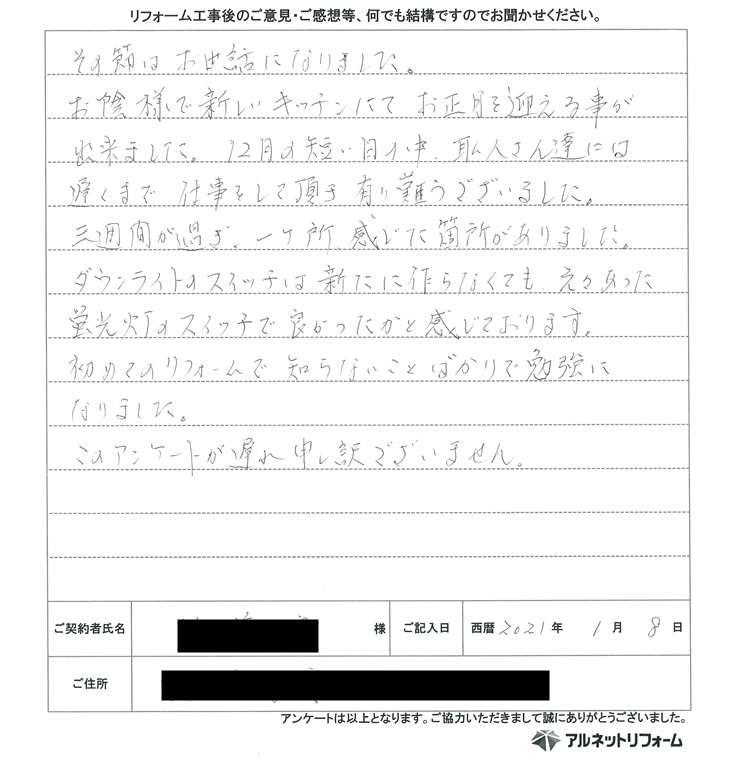 リフォーム工事後のご意見・ご感想等、何でも結構ですのでお聞かせください。
その節はお世話になりました。
お陰様で新しいキッチンにて お正月を迎える事が
出来ました。12月の短い日の中、職人さん達には
遅くまで 仕事をして頂き 有り難うございました。
三週間が過ぎ、一ヶ所 感じた箇所がありました。
ダウンライトのスイッチは 新たに作らなくても 元々あった
蛍光灯のスイッチで良かったかと感じております。
初めてのリフォームで 知らないことばかりで勉強に
なりました。
このアンケートが遅れ 申し訳ございません。
ご契約者氏名 様 ご記入日 西暦 2021 年 1 月 8 日
ご住所
アンケートは以上となります。ご協力いただきまして誠にありがとうございました。
アルネットリフォーム